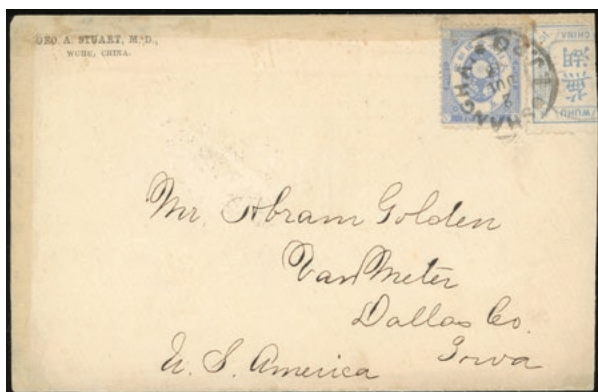 GEO. A. STUART, M.D.,
WUHU, CHINA.
SHANGHAI
JUL
2
CHINA
蕪湖
WUHU
Mr. Abram Golden
Van Meter
Dallas Co.
Iowa
U. S. America